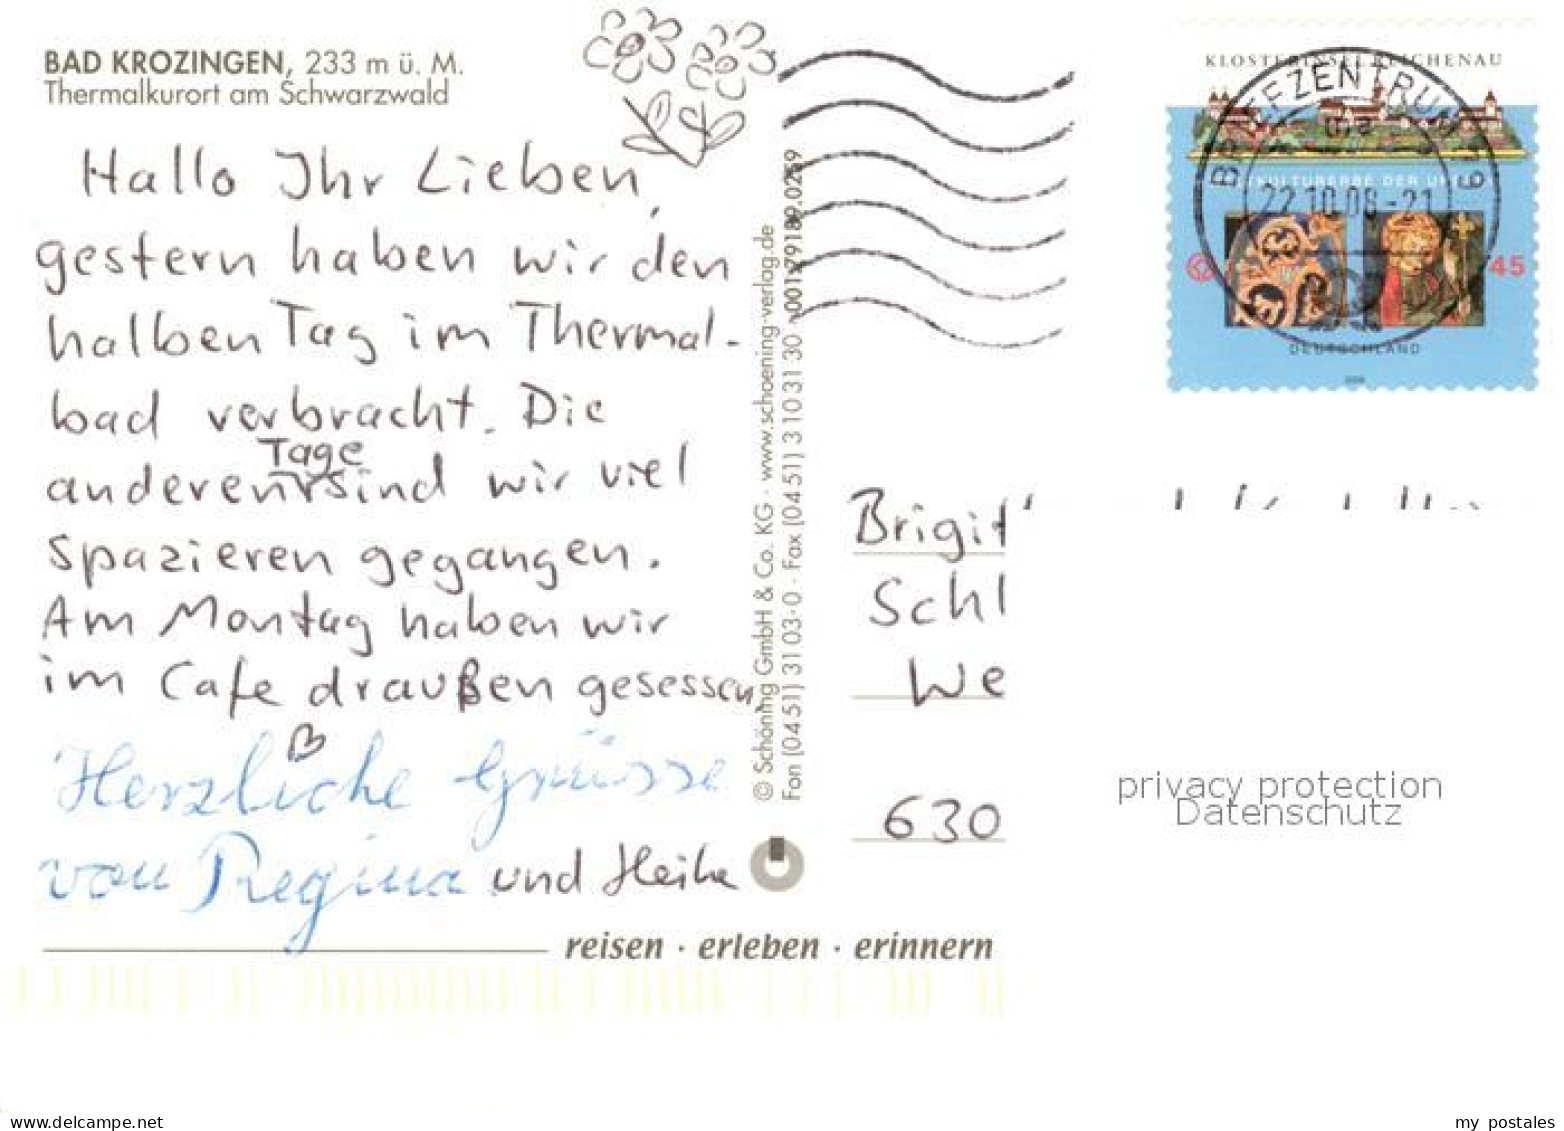 BAD KROZINGEN, 233 m ü. M.
Thermalkurort am Schwarzwald
Hallo Ihr Lieben,
gestern haben wir den
halben Tag im Thermal-
bad verbracht. Die
anderen Tage sind wir viel
spazieren gegangen.
Am Montag haben wir
im Cafe draußen gesessen.
Herzliche Grüsse
von Regina und Heike
reisen · erleben · erinnern
© Schöning GmbH & Co. KG · www.schoening-verlag.de
Fon (0451) 3103-0 · Fax (0451) 3103130
KLOSTERINSEL REICHENAU
BRIEFZENTRUM
22.10.08-21
45
DEUTSCHLAND
Schl
We
630
privacy protection
Datenschutz
www.delcampe.net
my postales